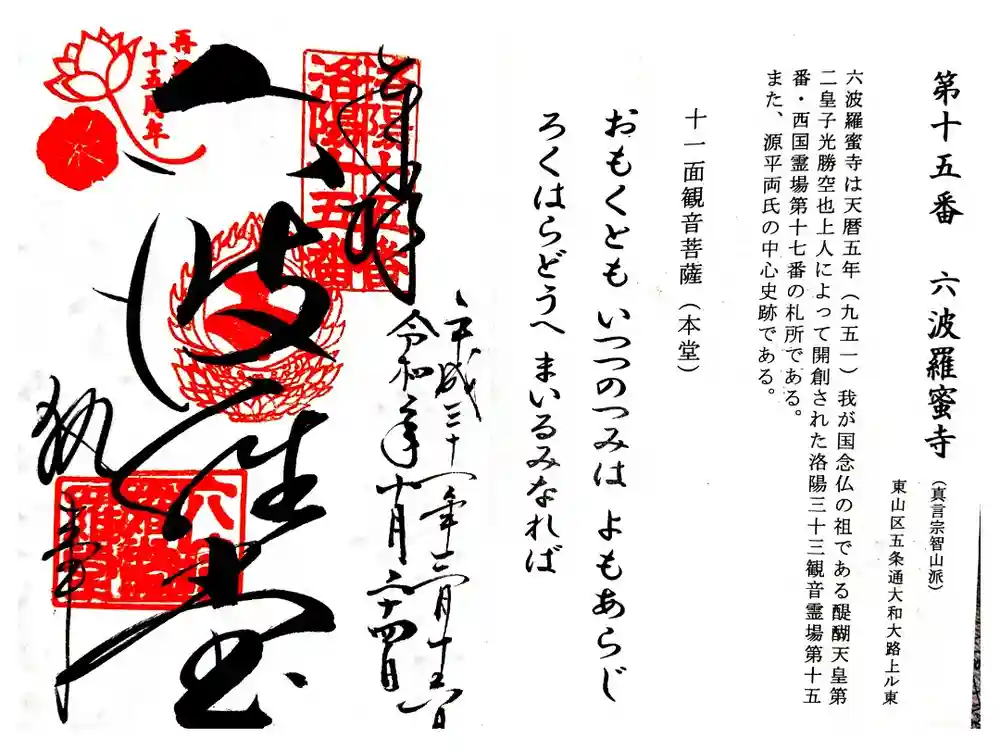 第十五番 六波羅蜜寺（真言宗智山派）
東山区五条通大和大路上ル東
六波羅蜜寺は天暦五年（九五一）我が国念仏の祖である醍醐天皇第
二皇子光勝空也上人によって開創された洛陽三十三観音霊場第十五
番・西国霊場第十七番の札所である。
また、源平両氏の中心史跡である。
十一面観音菩薩（本堂）
おもくとも いつつのつみは よもあらじ
ろくはらどうへ まいるみなれば
奉拝
洛陽十五番
洛陽十五番
平成三十一年三月十六日
令和二年十月二十四日
六波羅堂
十五周年